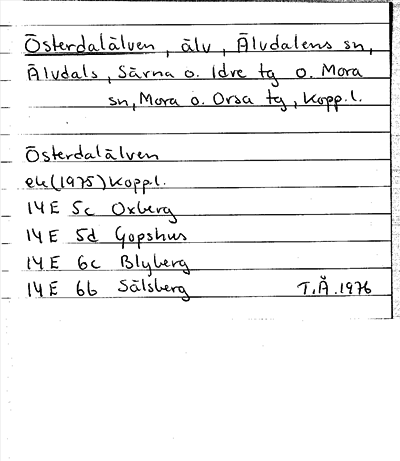 Österdalälven, älv, Älvdalens sn,
Älvdals, Särna o. Idre tg o. Mora
sn, Mora o. Orsa tg, Kopp.l.
Österdalälven
ek(1975)Koppl.
14E 5c Oxberg
14E 5d Gopshus
14E 6c Blyberg
14E 6b Sälsberg T.Å.1976